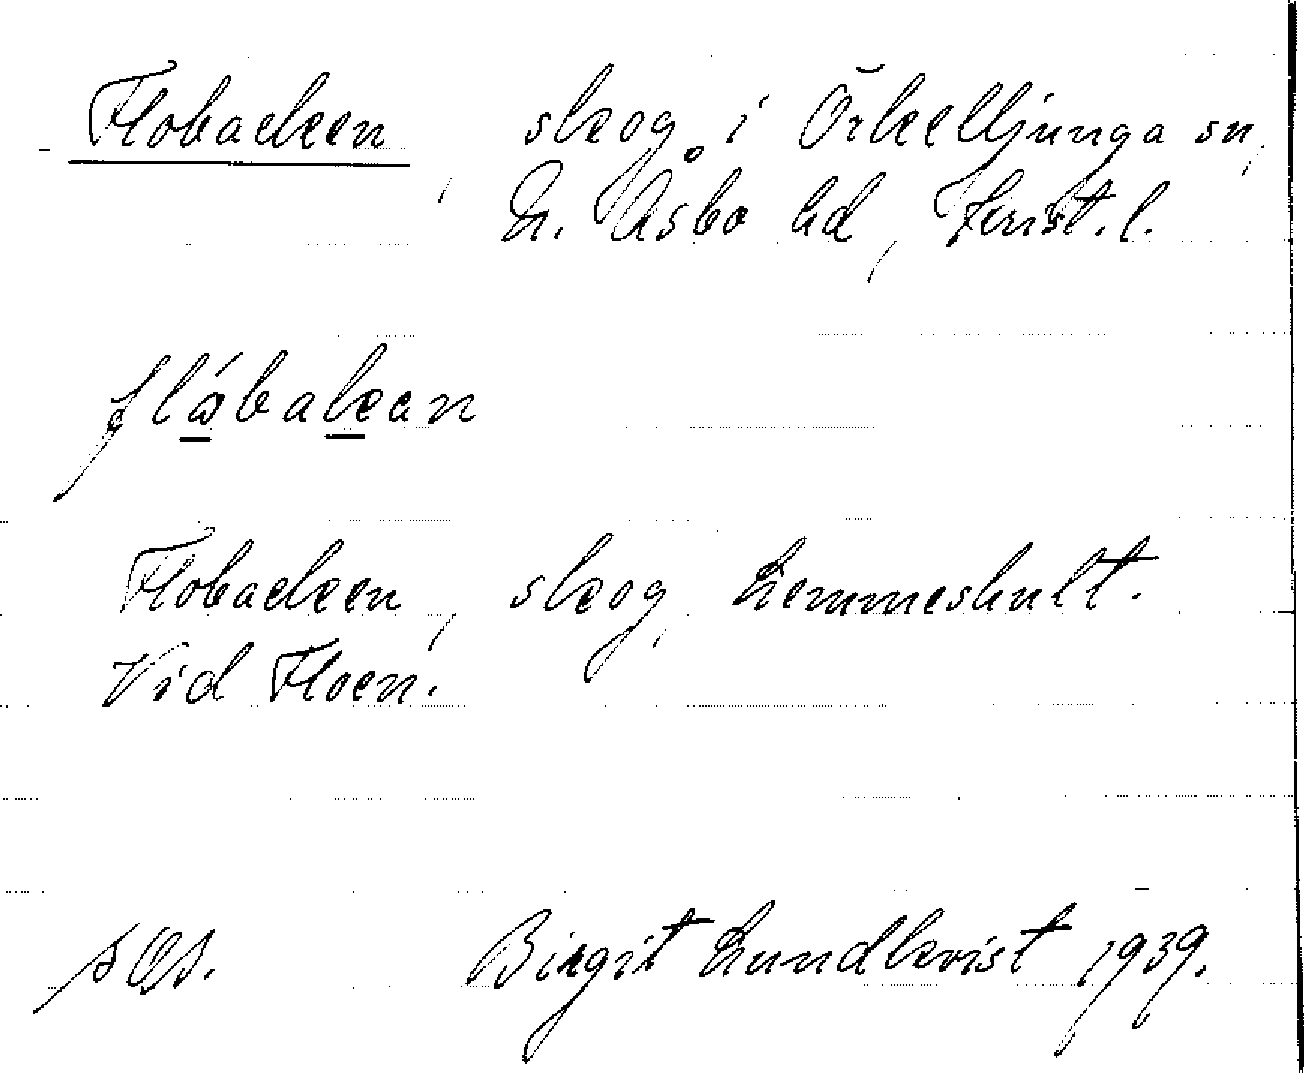 Flobacken, skog i Örkelljunga sn,
N. Åsbo hd, Krist. l.
flàbakan
Flobacken, skog, Lemmeshult.
Vid Floen.
Birgit Lundkvist 1939.